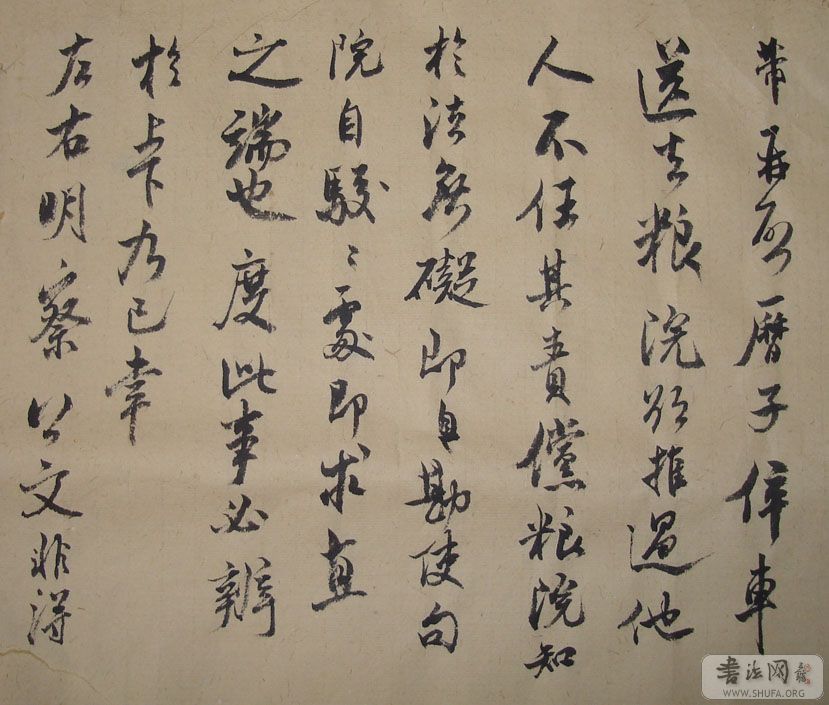 带前所历子倅車
送去粮院欲推過他
人不任其責儻粮院知
於法無礙即自勘使句
院自駮〻處即求直
之端也度此事必辨
於上下乃已幸
左右明察公文非得
書法网
WWW.SHUFA.ORG